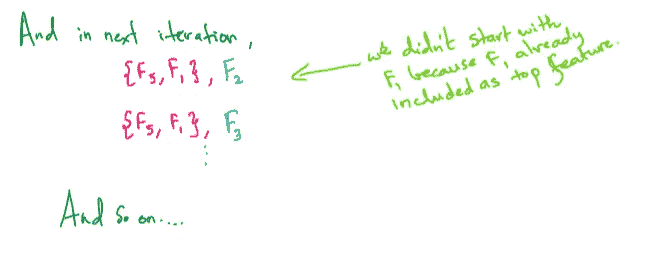 And in next iteration,
{F5, F1}, F2
{F5, F1}, F3
⋮
And so on....
we didn't start with
F1 because F1 already
included as top feature.